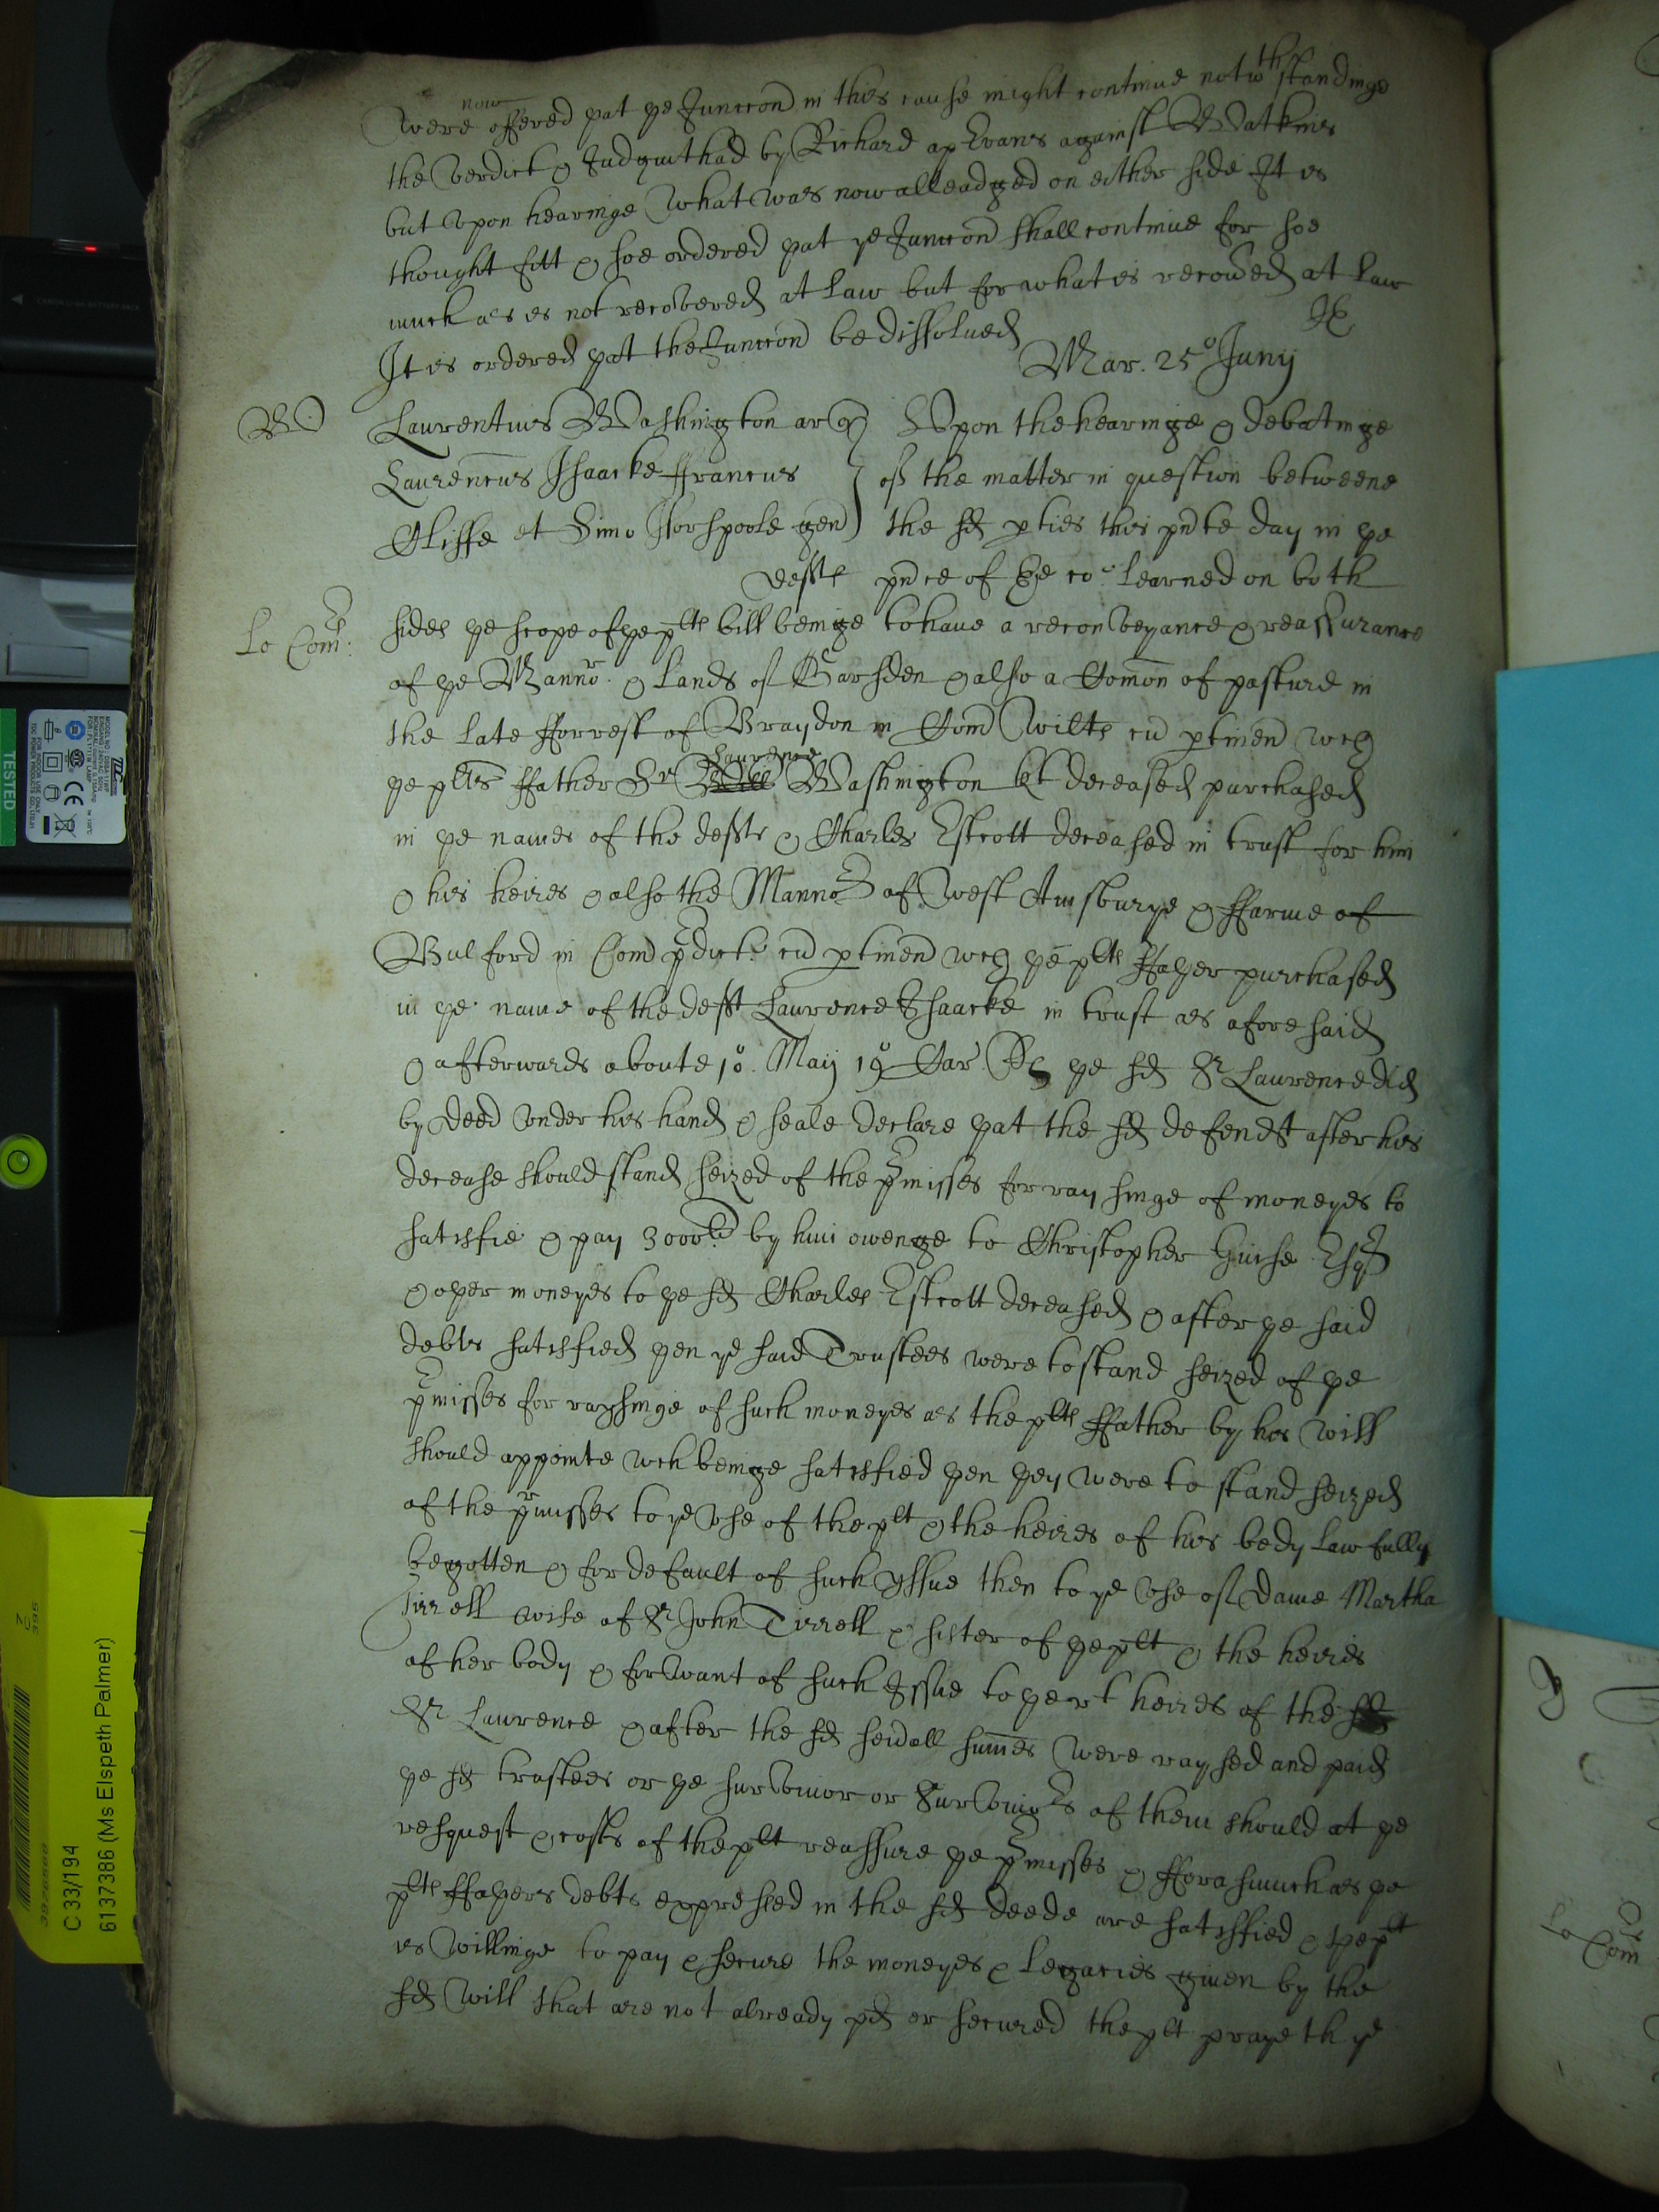 were now offered yat ye Junccon in this cause might continue notwthstandinge
the verdict & Judgmt had by Richard ap Evans against Watkins
but vpon hearinge what was now alleadged on either side It is
thought fitt & soe ordered yat ye Junccon shall continue for soe
much as is not recovered at law but for what is recoued at law
It is ordered yat the Junccon be dissolued
Mar. 25o Junij
W
Laurentius Washington ar qr Vpon the hearinge & debatinge
Laurencus Isaacke ffrancus of the matter in question betweene
Cliffe et Simo Horspoole gen the sd pties this pnte day in ye
defts pnce of ye co learned on both
Lo Com:
sides ye scope of ye plts bill beinge to haue a reconveyance & reassurance
of ye Mannor & lands of Garsden & also a Comon of pasture in
the late fforrest of Braydon in Com Wilts cu ptinen wch
ye plts ffather Sr Laurence Washington kt deceased purchased
in ye names of the defts & Charles Estcott deceased in trust for him
& his heires & also the Mannor of West Amsburye & ffarme of
Bulford in Com pdict cu ptinen wch ye plts ffayer purchased
in ye name of the deft Laurence Isaacke in trust as aforesaid
& afterwards aboute 10 Maij 19 Car R ye sd Sr Laurence did
by deed vnder his hand & seale declare yat the sd defendt after his
decease should stand seized of the pmisses for raysinge of moneyes to
satisfie & pay 3000li by him oweinge to Christopher Guise Esqr
& oyer moneyes to ye sd Charles Estcott deceased & after ye said
debts satisfied yen ye said Trustees were to stand seized of ye
pmisses for raysinge of such moneyes as the plts ffather by his will
should appointe wch beinge satisfied yen yey were to stand seized
of the prmisses to ye vse of the plt & the heires of his body lawfully
begotten & for default of such yssue then to ye vse of Dame Martha
Tirrell wife of Sr John Tirrell & sister of ye plt & the heires
of her body & for want of such Issue to ye rt heires of the sd
Sr Laurence & after the sd seuall summes were raysed and paid
ye sd trustees or ye survivor or Survivors of them should at ye
resquest & costs of the plt reassure ye pmisses & fforasmuch as ye
plts ffayers debts expressed in the sd deede are satisfied & ye plt
is willinge to pay & secure the moneyes & legacies giuen by the
sd will that are not already pd or secured the plt prayeth yt
TESTED
C 33/194
6137386 (Ms Elspeth Palmer)
Lo Com